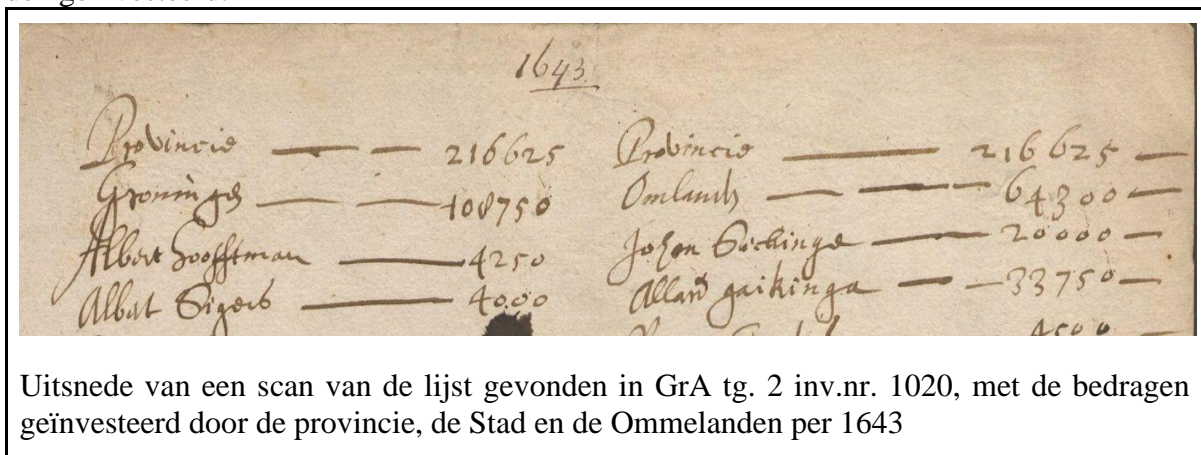 1643
Provincie 216625
Groningen 108750
Albert Hoofftman 4250
Albert Sigers 4000
Provincie 216625
Omlandn 64300
Johan Sickinge 20000
Allard gaikinga 33750
4500
Uitsnede van een scan van de lijst gevonden in GrA tg. 2 inv.nr. 1020, met de bedragen
geïnvesteerd door de provincie, de Stad en de Ommelanden per 1643